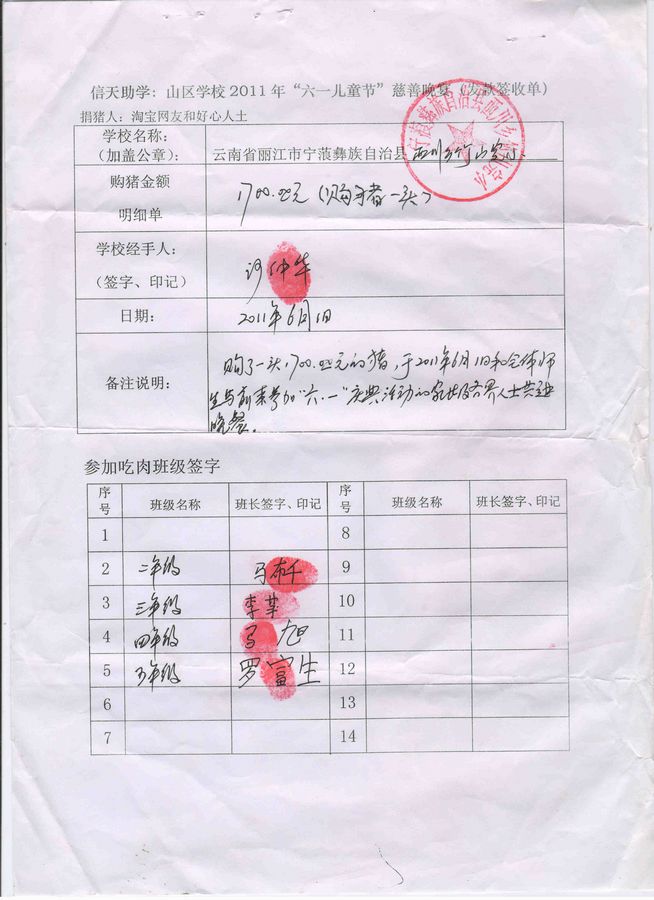 信天助学：山区学校2011年“六一儿童节”慈善晚宴（发款签收单）
捐猪人：淘宝网友和好心人士
学校名称：
（加盖公章）：
云南省丽江市宁蒗彝族自治县西川乡竹山完小
购猪金额
明细单
1700.00元（购年猪一头）
学校经手人：
（签字、印记）
仲华
日期：
2011年6月1日
备注说明：
购了一头1700.00元的猪，于2011年6月1日和全体师
生与前来参加“六.一”庆典活动的家长及各界人士共进
晚餐。
参加吃肉班级签字
序号 班级名称 班长签字、印记 序号 班级名称 班长签字、印记
1 8
2 二年级 马布千 9
3 三年级 李华 10
4 四年级 马旭 11
5 五年级 罗富生 12
6 13
7 14